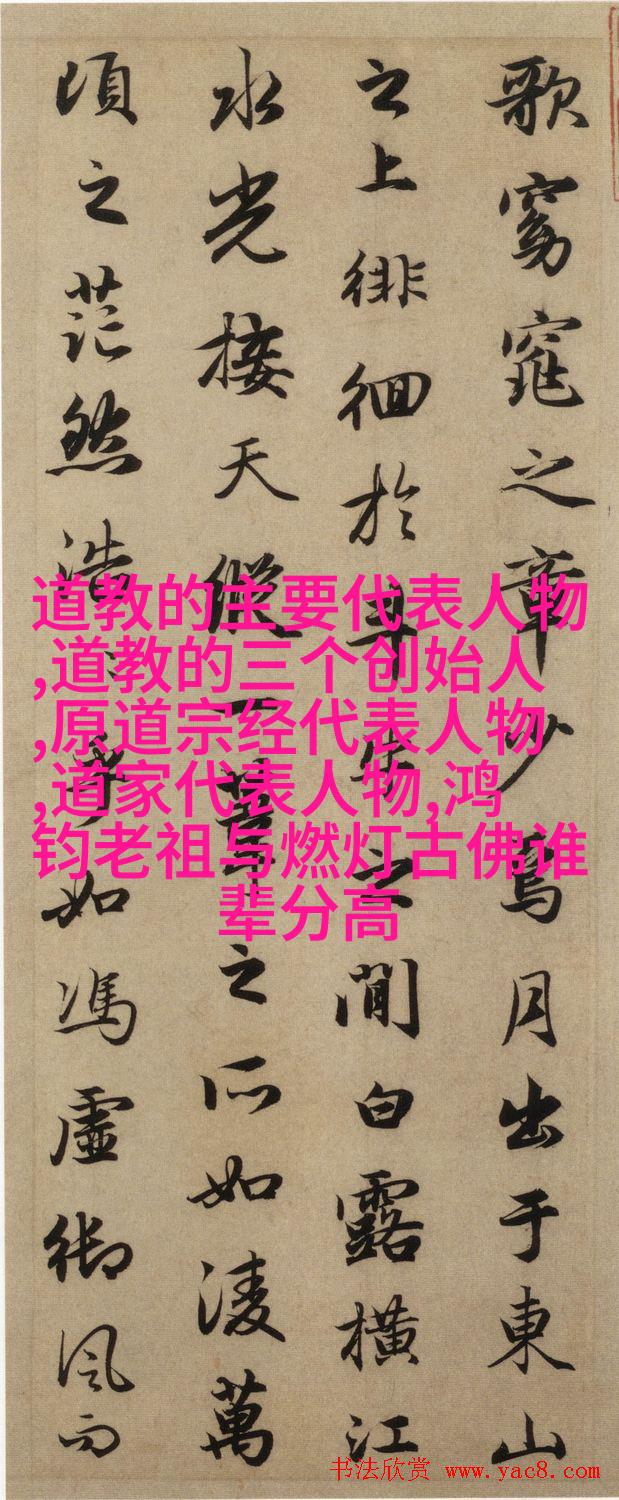 歌窈窕之章少焉月出于東山
之上徘徊於斗牛之間白露橫江
水光接天縱一葦之所如淩萬
頃之茫然浩乎如馮虛御風而
道教的主要代表人物
,道教的三个创始人
,原道宗经代表人物
,道家代表人物,鸿
钧老祖与燃灯古佛谁
辈分高
书法欣赏 www.yac8.com